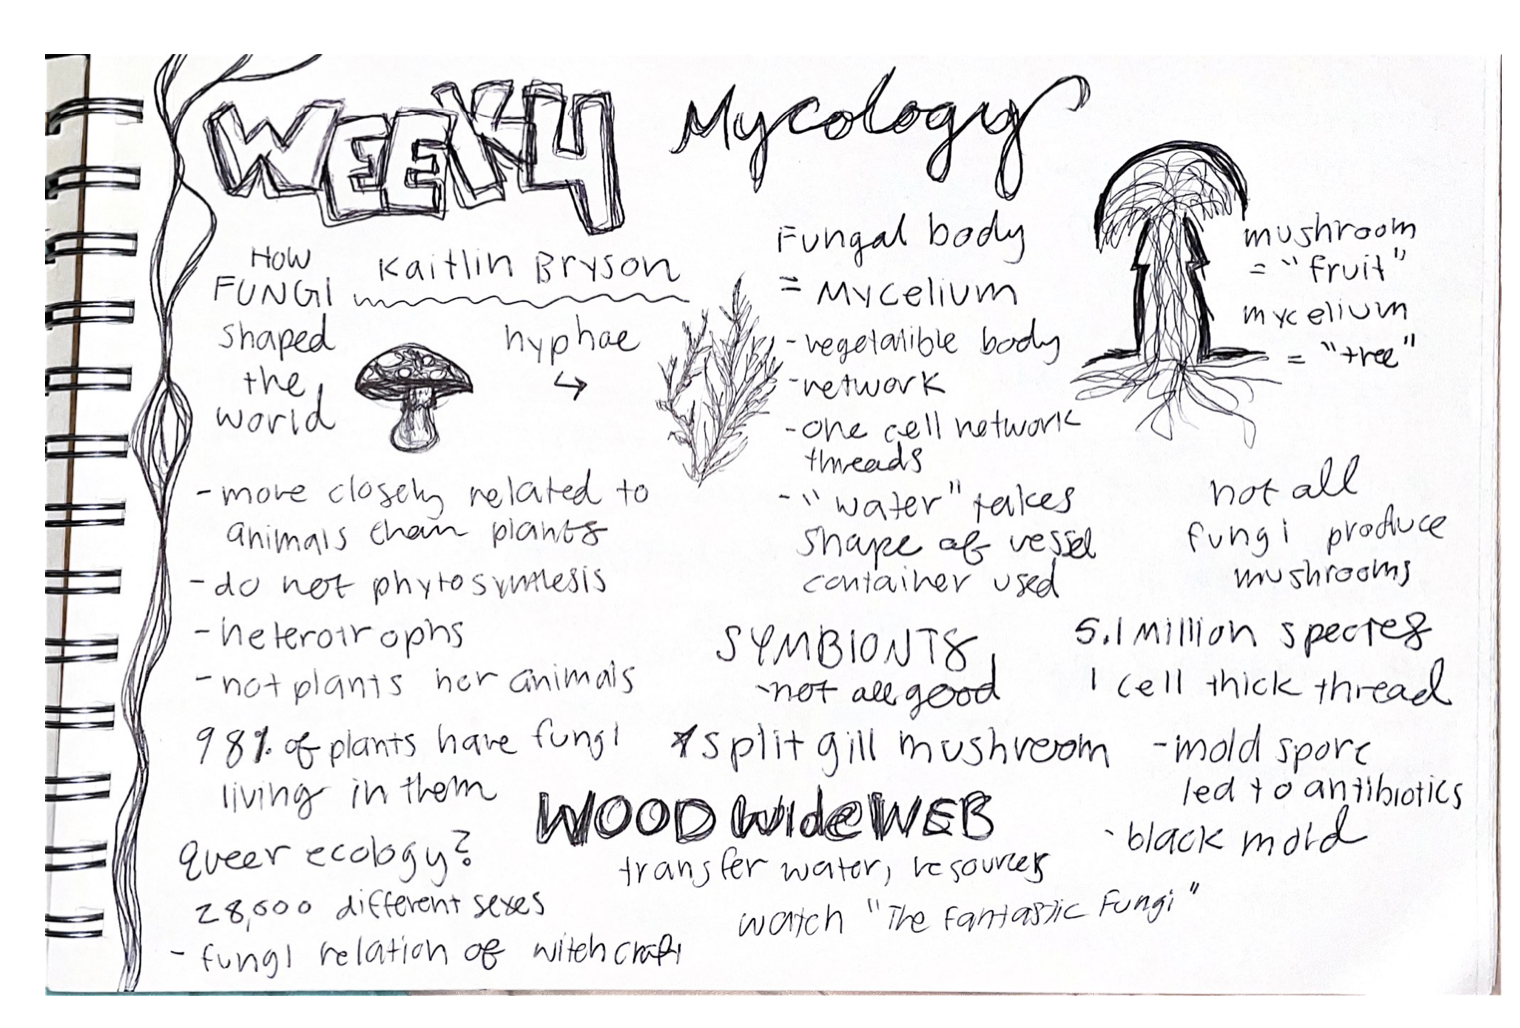 WEEK 4
Mycology
HOW
FUNGI
shaped
the
world
Kaitlin Bryson
hyphae
- more closely related to
animals than plants
- do not phytosynthesis
- heterotrophs
- not plants nor animals
98% of plants have fungi
living in them
queer ecology?
28,000 different sexes
- fungi relation of witchcraft
Fungal body
= Mycelium
- vegetatible body
- network
- one cell network
threads
- "water" takes
shape of vessel
container used
SYMBIONTS
- not all good
* split gill mushroom
WOOD Wide WEB
transfer water, resources
watch "The Fantastic Fungi"
mushroom
= "fruit"
mycelium
= "tree"
not all
fungi produce
mushrooms
5.1 million species
1 cell thick thread
- mold spore
led to antibiotics
- black mold